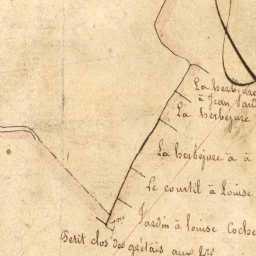 La herbejure
à Jean
La herbejure
La herbejure à à
Le courtil à Louise
Jardin à Louise Coche
Petit clos des aux